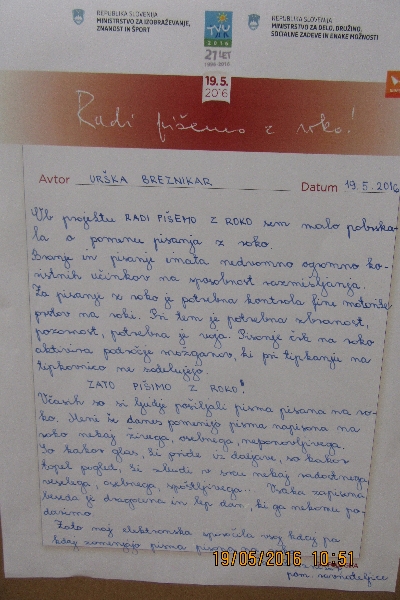 REPUBLIKA SLOVENIJA
MINISTRSTVO ZA IZOBRAŽEVANJE,
ZNANOST IN ŠPORT
TVU
2016
21 LET
1996-2016
REPUBLIKA SLOVENIJA
MINISTRSTVO ZA DELO, DRUŽINO,
SOCIALNE ZADEVE IN ENAKE MOŽNOSTI
19.5.
2016
Radi pišemo z roko!
Avtor URŠKA BREZNIKAR Datum 19.5.2016
Ob projektu RADI PIŠEMO Z ROKO sem malo pobrska-
la o pomenu pisanja z roko.
Branje in pisanje imata nedvomno ogromno ko-
ristnih učinkov na sposobnost razmišljanja.
Za pisanje z roko je potrebna kontrola fine motorike
prstov na roki. Pri tem je potrebna zbranost,
pozornost, potrebna je vaja. Pisanje črk na roko
aktivira področje možganov, ki pri tipkanju na
tipkovnico ne sodelujejo.
ZATO PIŠIMO Z ROKO!
Včasih so si ljudje pošiljali pisma pisana na ro-
ko. Meni še danes pomenijo pisma napisana na
roko nekaj živega, osebnega, neponovljivega.
So kakor glas, ki pride iz daljave, so kakor
topel pogled, ki zbudi v srcu nekaj radostnega,
veselega, osebnega, spoštljivega.. Vsaka zapisana
beseda je dragocena in lep dar, ki ga nekomu po-
darimo.
Zato naj elektronska sporočila vsaj kdaj pa
kdaj zamenjajo pisma pisana
19/05/2016 10:51
pom. ravnateljice